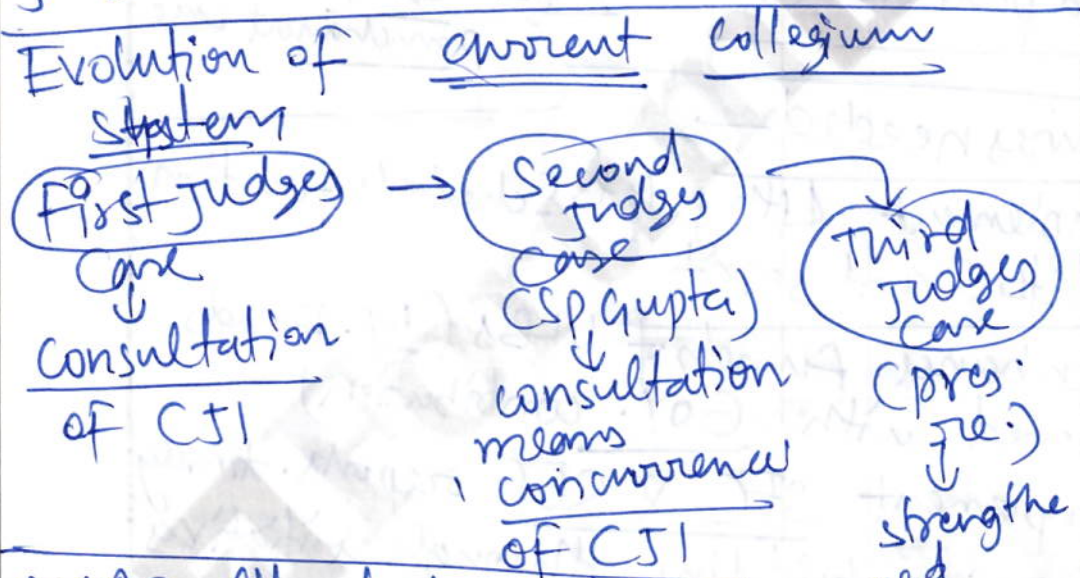 Evolution of current collegium
system
First Judges
Case
consultation
of CJI
Second
Judges
Case
(SP Gupta)
consultation
means
concurrence
of CJI
Third
Judges
Case
(pres.
re.)
strengthe